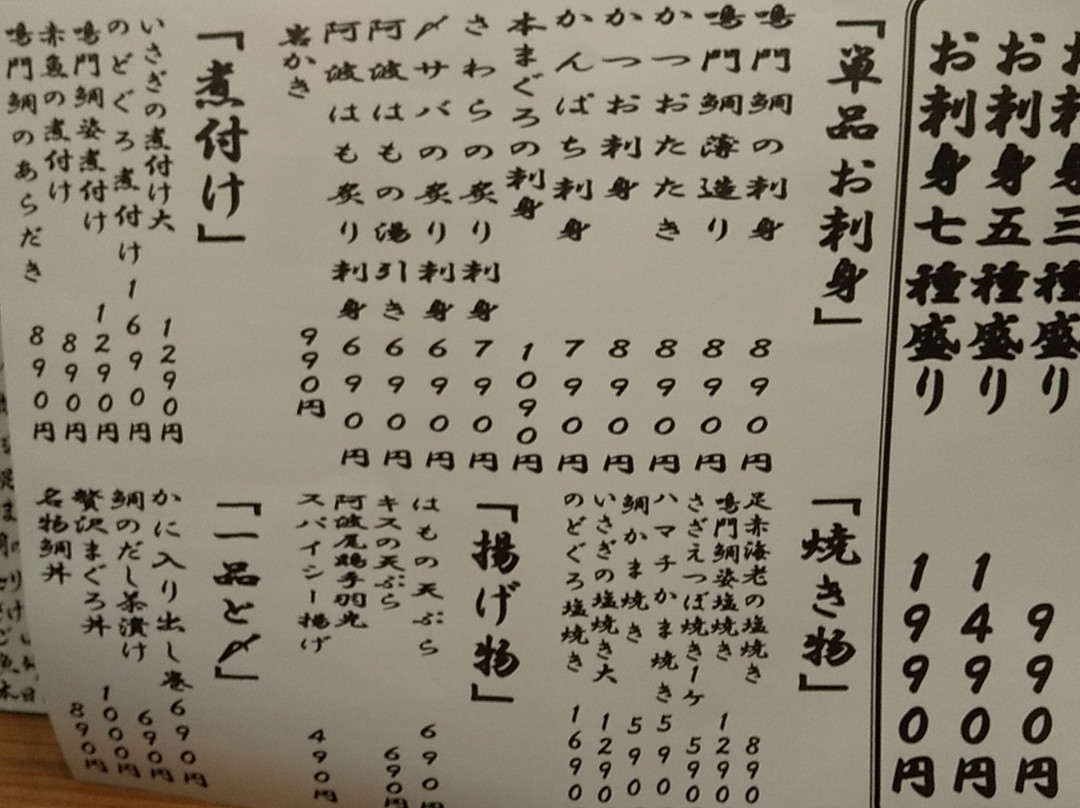 お刺身三種盛り 990円
お刺身五種盛り 1490円
お刺身七種盛り 1990円
「単品お刺身」
鳴門鯛の刺身 890円
鳴門鯛薄造り 890円
かつおたたき 890円
かつお刺身 890円
かんぱち刺身 790円
本まぐろの刺身 1090円
さわらの炙り刺身 790円
〆サバの炙り刺身 690円
阿波はもの湯引き 690円
阿波はも炙り刺身 690円
岩かき 990円
「煮付け」
いさぎの煮付け大 1290円
のどぐろ煮付け 1690円
鳴門鯛姿煮付け 1290円
赤魚の煮付け 890円
鳴門鯛のあらだき 890円
「焼き物」
足赤海老の塩焼き 890
鳴門鯛姿塩焼き 1290
さざえつぼ焼き1ヶ 590
ハマチかま焼き 590
鯛かま焼き 590
いさぎの塩焼き大 1290
のどぐろ塩焼き 1690
「揚げ物」
はもの天ぷら 690円
キスの天ぷら 690円
阿波尾鶏手羽先
スパイシー揚げ 490円
「一品と〆」
かに入り出し巻 690円
鯛のだし茶漬け 690円
贅沢まぐろ丼 1000円
名物鯛丼 890円